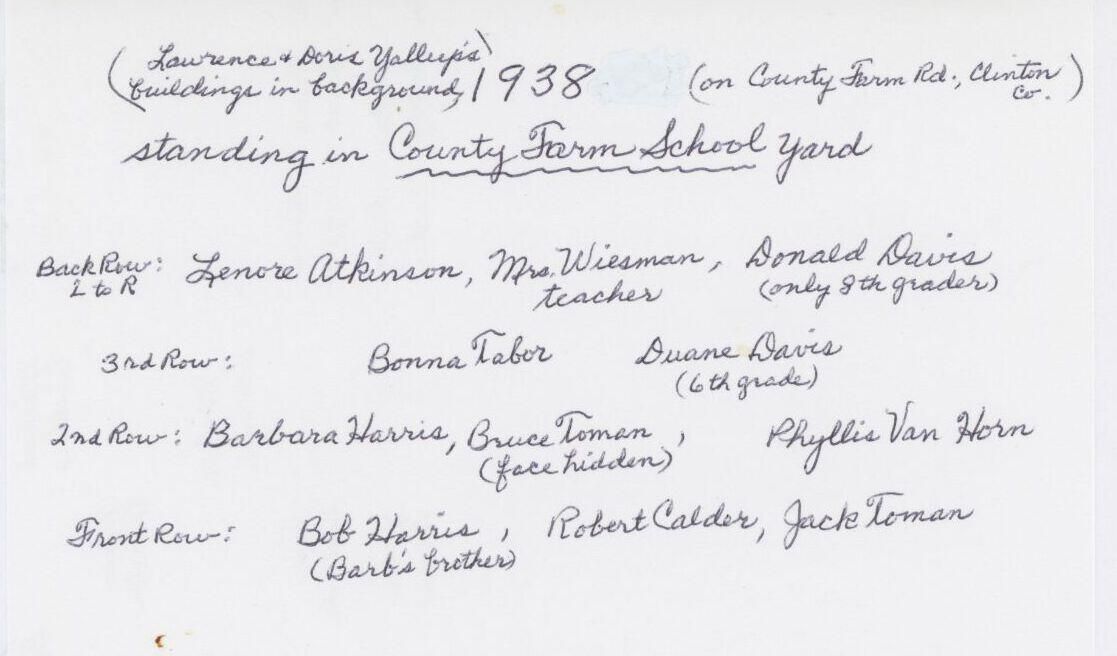 (Lawrence & Doris Yallup's
buildings in background) 1938 (on County Farm Rd., Clinton Co.)
standing in County Farm School Yard
Back Row: Lenore Atkinson, Mrs. Wiesman, Donald Davis
L to R teacher (only 8th grader)
3rd Row: Bonna Tabor Duane Davis
(6th grade)
2nd Row: Barbara Harris, Bruce Toman, Phyllis Van Horn
(face hidden)
Front Row: Bob Harris, Robert Calder, Jack Toman
(Barb's brother)